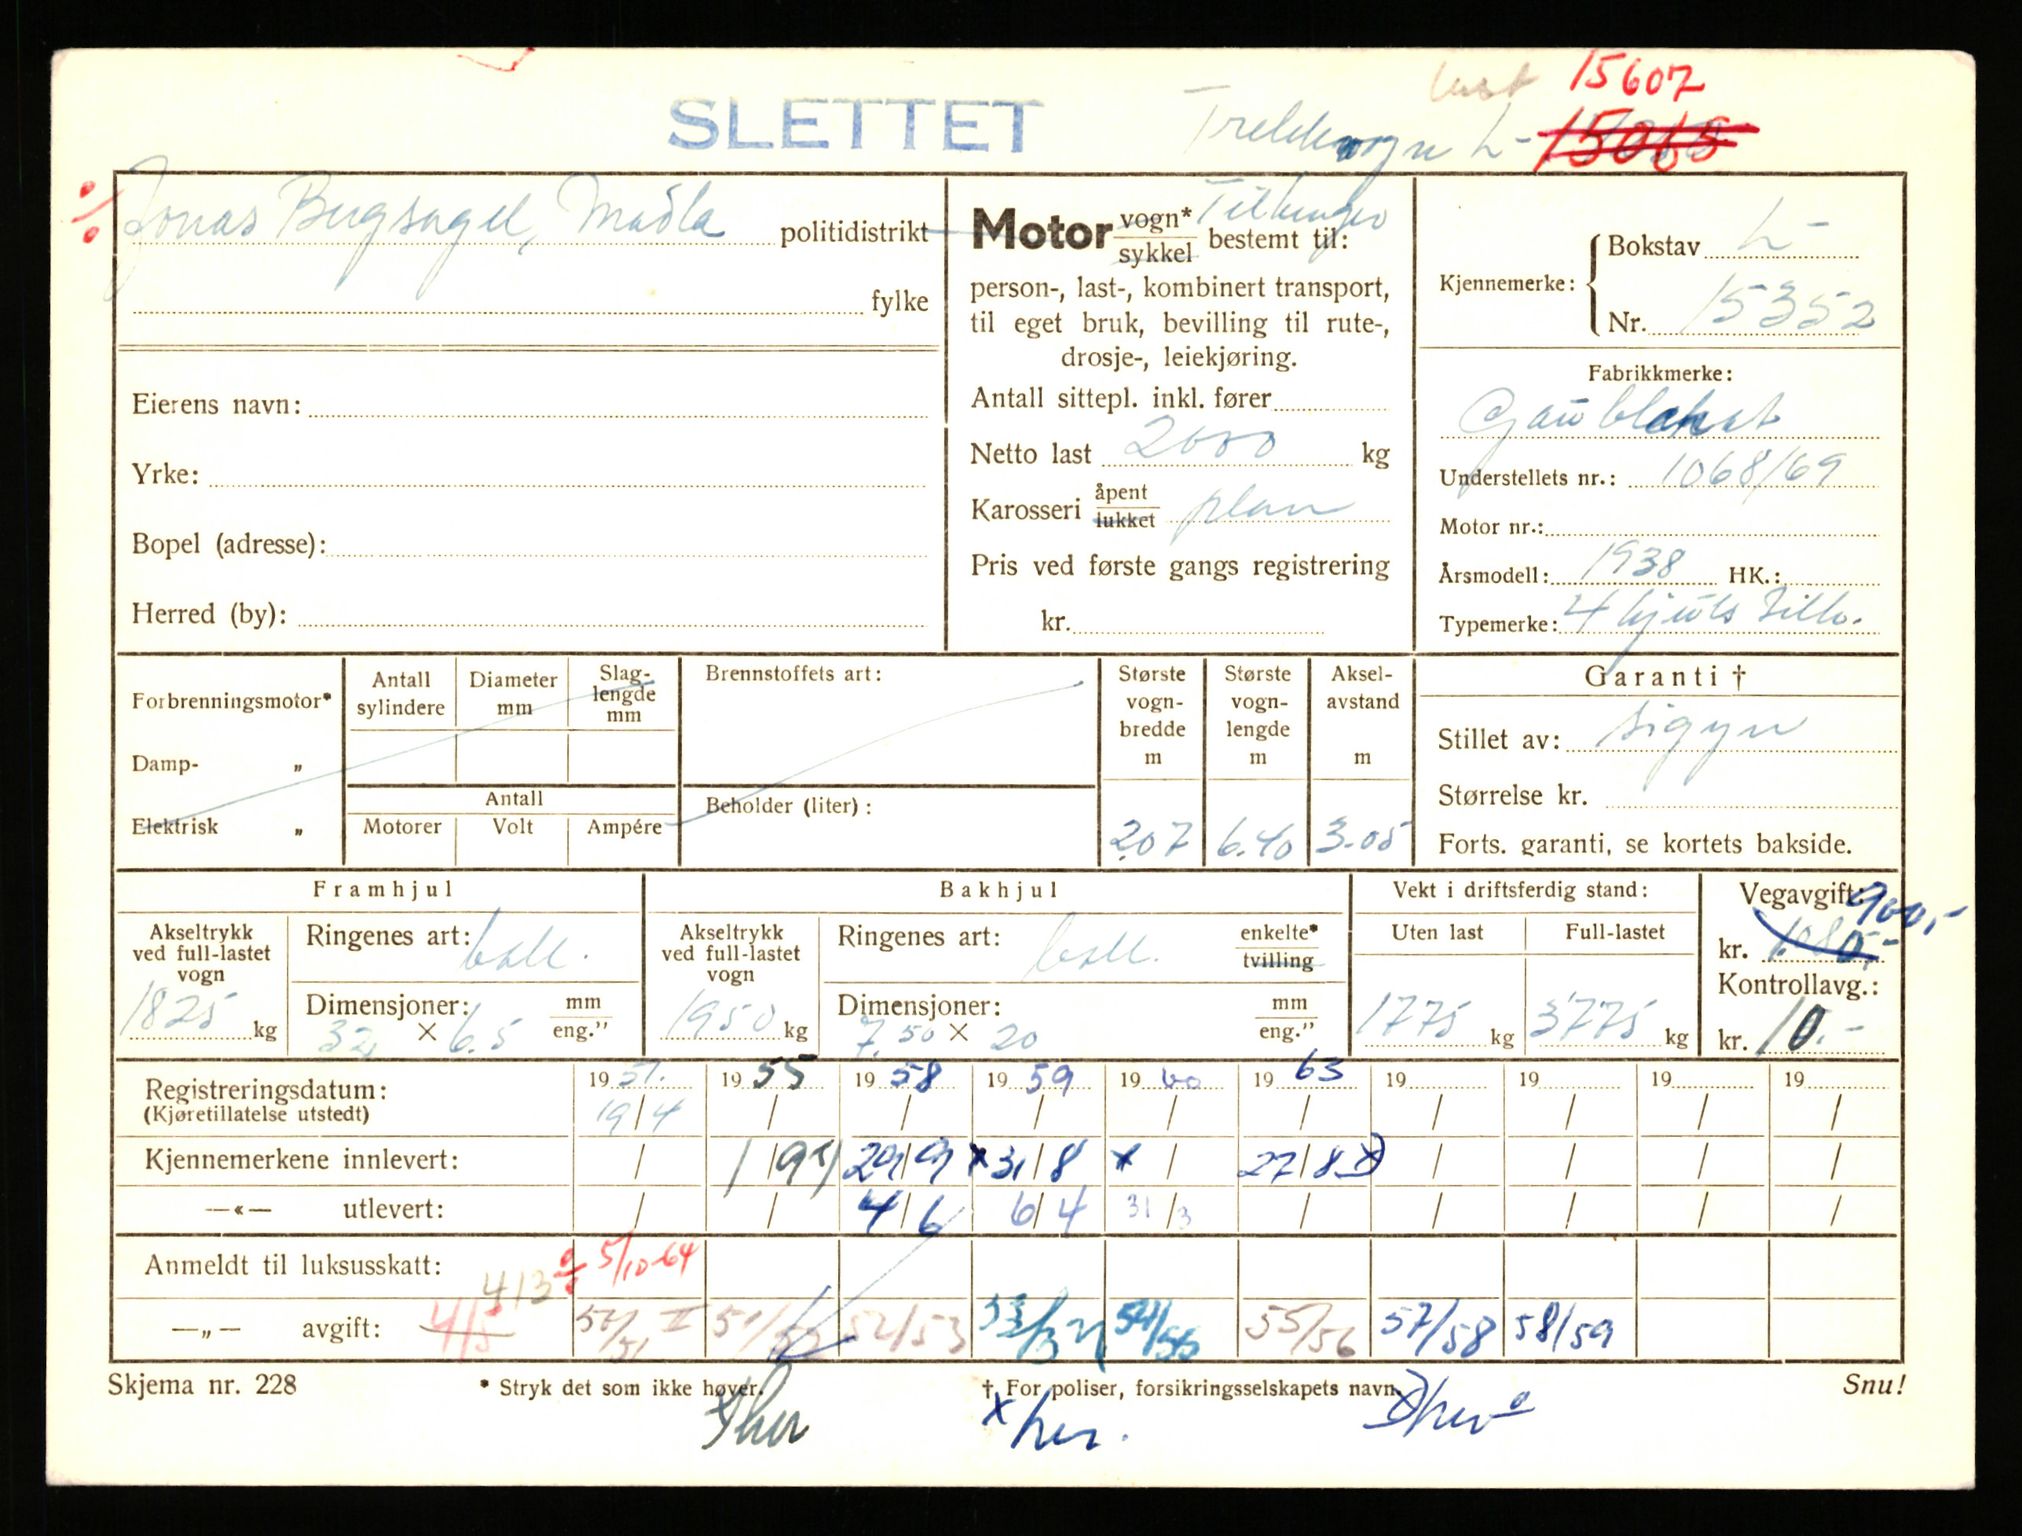 last 15607
SLETTET
Trekkvogn L- 15065
Jonas Bugsagel, Madla politidistrikt
fylke
Eierens navn:
Yrke:
Bopel (adresse):
Herred (by):
Motor vogn* Tilhenger
sykkel bestemt til:
person-, last-, kombinert transport,
til eget bruk, bevilling til rute-,
drosje-, leiekjøring.
Antall sittepl. inkl. fører
Netto last 2000 kg
Karosseri åpent
lukket plan
Pris ved første gangs registrering
kr.
Kjennemerke: Bokstav L-
Nr. 15352
Fabrikkmerke:
Understellets nr.: 1068/69
Motor nr.:
Årsmodell: 1938 HK.:
Typemerke: 4 hjuls
Forbrenningsmotor*
Damp- „
Elektrisk „
Antall sylindere
Diameter mm
Slag-lengde mm
Antall
Motorer Volt Ampére
Brennstoffets art:
Beholder (liter):
Største vogn-bredde m
2.07
Største vogn-lengde m
6.40
Aksel-avstand m
3.05
Garanti †
Stillet av: Sigyn
Størrelse kr.
Forts. garanti, se kortets bakside.
Framhjul
Akseltrykk ved full-lastet vogn
1825 kg
Ringenes art: ball.
Dimensjoner: mm
32 × 6.5 eng."
Bakhjul
Akseltrykk ved full-lastet vogn
1950 kg
Ringenes art: ball. enkelte*
tvilling
Dimensjoner: mm
7.50 × 20 eng."
Vekt i driftsferdig stand:
Uten last Full-lastet
1775 kg 3775 kg
Vegavgift: 900,-
kr. 1080,-
Kontrollavg.:
kr. 10.-
Registreringsdatum: 1951. 1955 1958 1959 1960 1963 19 19 19 19
(Kjøretillatelse utstedt) 19/4 / / / / / / / / /
Kjennemerkene innlevert: / 1/9 29/9 x 31/8 x / 27/8 x / / / /
—«— utlevert: / / 4/6 6/4 31/3 / / / / /
Anmeldt til luksusskatt: 413 5/10-64
—„— avgift: 4/5 50/51 II 51/52 52/53 53/54 54/55 55/56 57/58 58/59
Skjema nr. 228 * Stryk det som ikke høver. † For poliser, forsikringsselskapets navn. Snu!
x her x her. x her